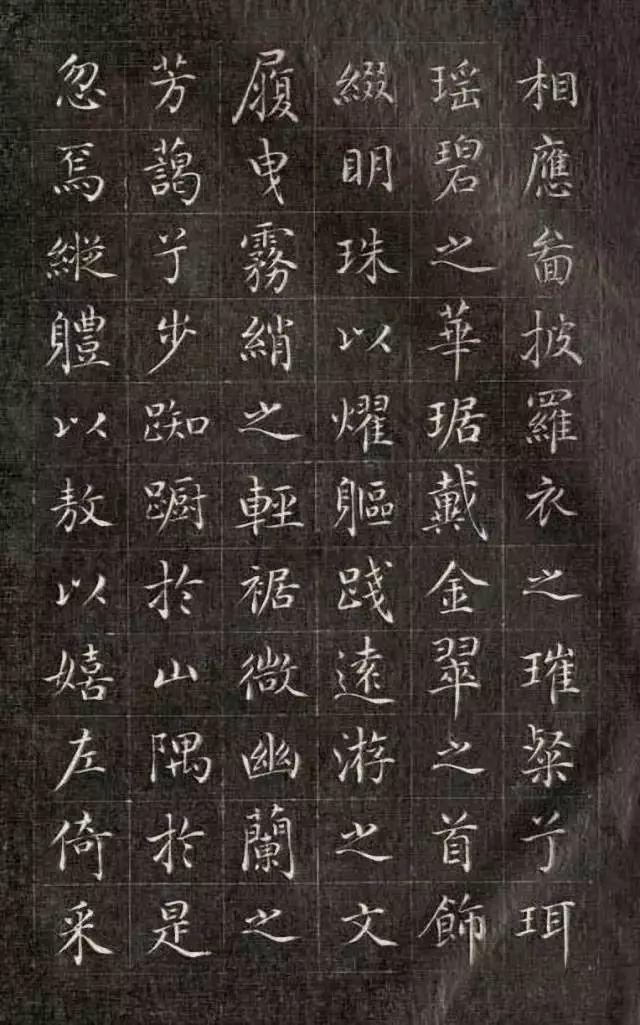 相應畣披羅衣之璀粲兮珥
瑶碧之華琚戴金翠之首飾
綴明珠以燿軀踐遠游之文
履曳霧綃之輕裾微幽蘭之
芳藹兮步踟躕於山隅於是
忽焉縱軆以敖以嬉左倚采